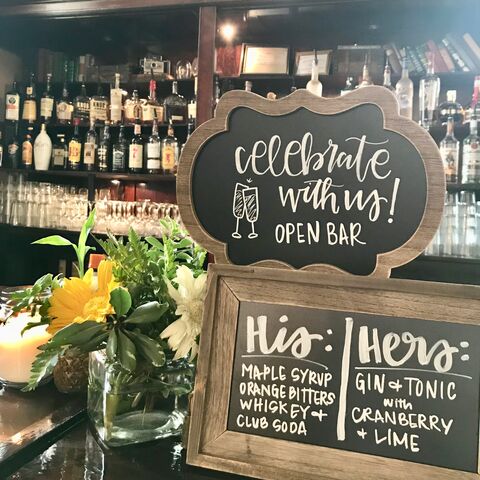 celebrate
with us!
OPEN BAR
His:
MAPLE SYRUP
ORANGE BITTERS
WHISKEY +
CLUB SODA
Hers:
GIN + TONIC
with
CRANBERRY
+ LIME